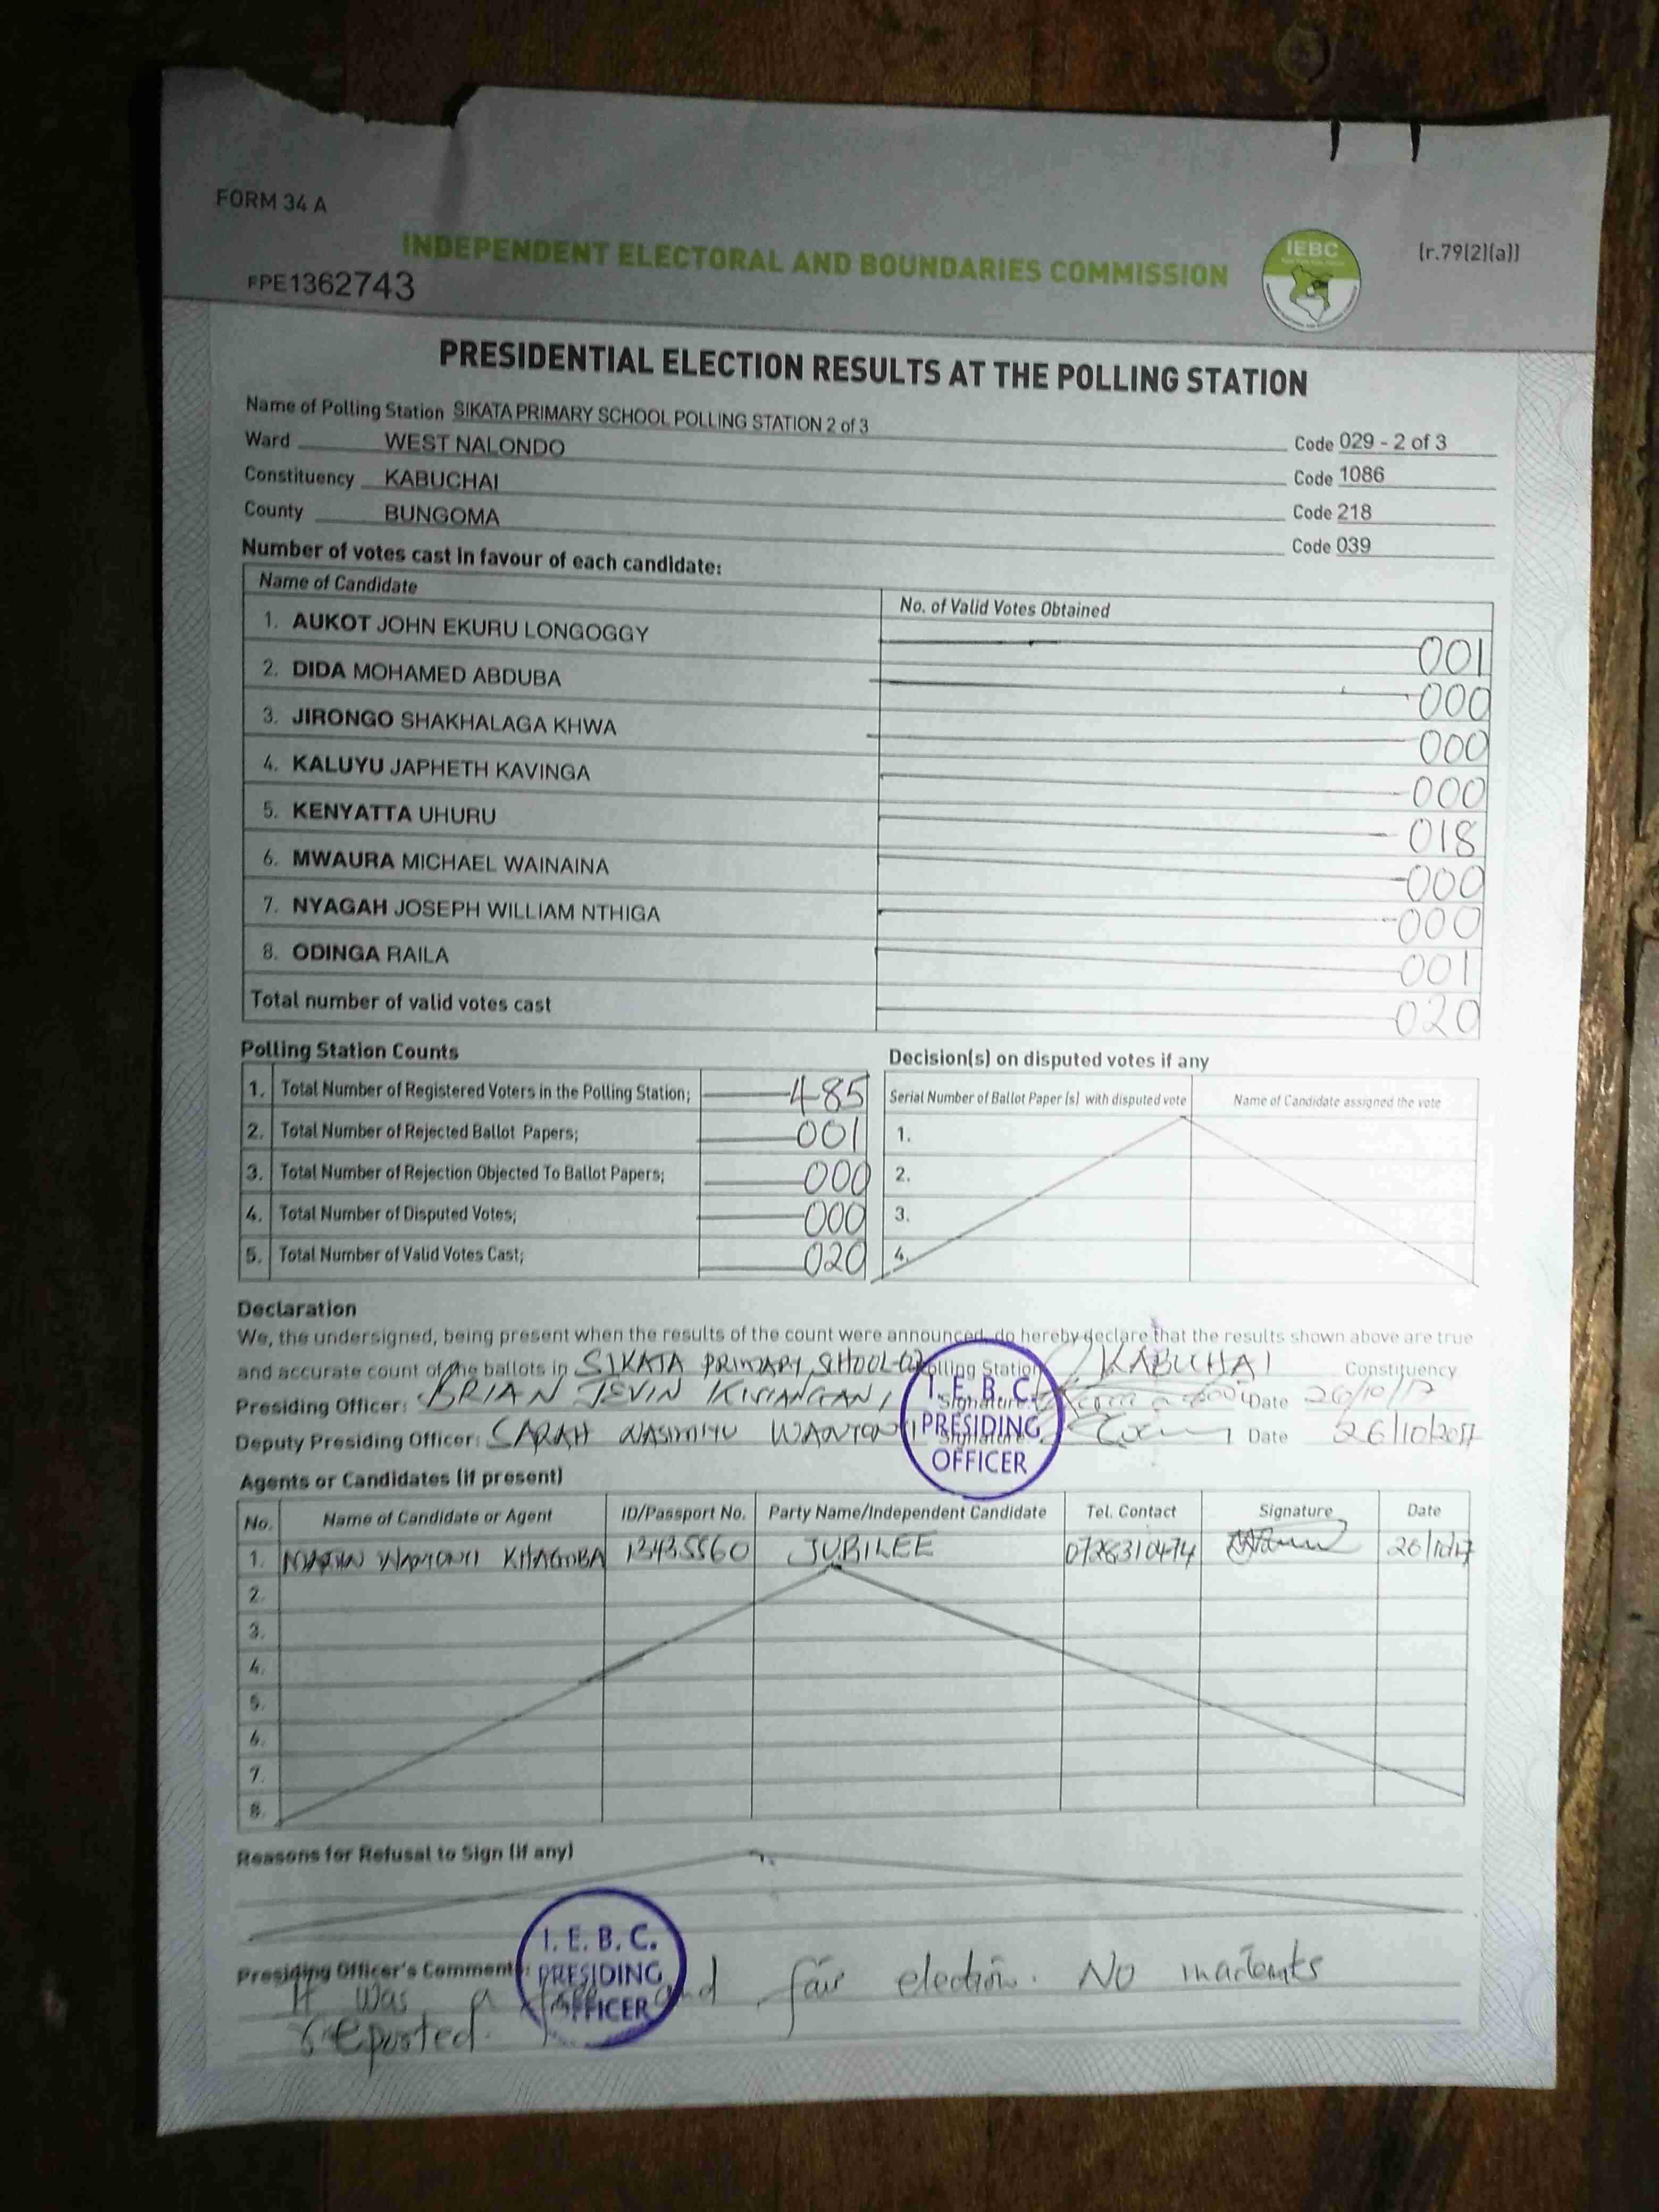 FORM 34 A
INDEPENDENT ELECTORAL AND BOUNDARIES COMMISSION
IEBC
(r.79(2)(a))
FPE1362743
PRESIDENTIAL ELECTION RESULTS AT THE POLLING STATION
Name of Polling Station SIKATA PRIMARY SCHOOL POLLING STATION 2 of 3 Code 029 - 2 of 3
Ward WEST NALONDO Code 1086
Constituency KABUCHAI Code 218
County BUNGOMA Code 039
Number of votes cast in favour of each candidate:
Name of Candidate No. of Valid Votes Obtained
1. AUKOT JOHN EKURU LONGOGGY 001
2. DIDA MOHAMED ABDUBA 000
3. JIRONGO SHAKHALAGA KHWA 000
4. KALUYU JAPHETH KAVINGA 000
5. KENYATTA UHURU 018
6. MWAURA MICHAEL WAINAINA 000
7. NYAGAH JOSEPH WILLIAM NTHIGA 000
8. ODINGA RAILA 001
Total number of valid votes cast 020
Polling Station Counts
1. Total Number of Registered Voters in the Polling Station; 485
2. Total Number of Rejected Ballot Papers; 001
3. Total Number of Rejection Objected To Ballot Papers; 000
4. Total Number of Disputed Votes; 000
5. Total Number of Valid Votes Cast; 020
Decision(s) on disputed votes if any
Serial Number of Ballot Paper (s) with disputed vote Name of Candidate assigned the vote
1.
2.
3.
4.
Declaration
We, the undersigned, being present when the results of the count were announced, do hereby declare that the results shown above are true
and accurate count of the ballots in SIKATA PRIMARY SCHOOL Polling Station KABUCHAI Constituency
Presiding Officer: BRIAN Signature Date 26/10/17
Deputy Presiding Officer: SARAH Signature Date 26/10/2017
I. E. B. C.
PRESIDING
OFFICER
Agents or Candidates (if present)
No. Name of Candidate or Agent ID/Passport No. Party Name/Independent Candidate Tel. Contact Signature Date
1. KHAGOBA 13435560 JUBILEE 0728310474 26/10/17
2.
3.
4.
5.
6.
7.
8.
Reasons for Refusal to Sign (if any)
I. E. B. C.
PRESIDING
OFFICER
Presiding Officer's Comments:
It was a and fair election. No incidents
reported.